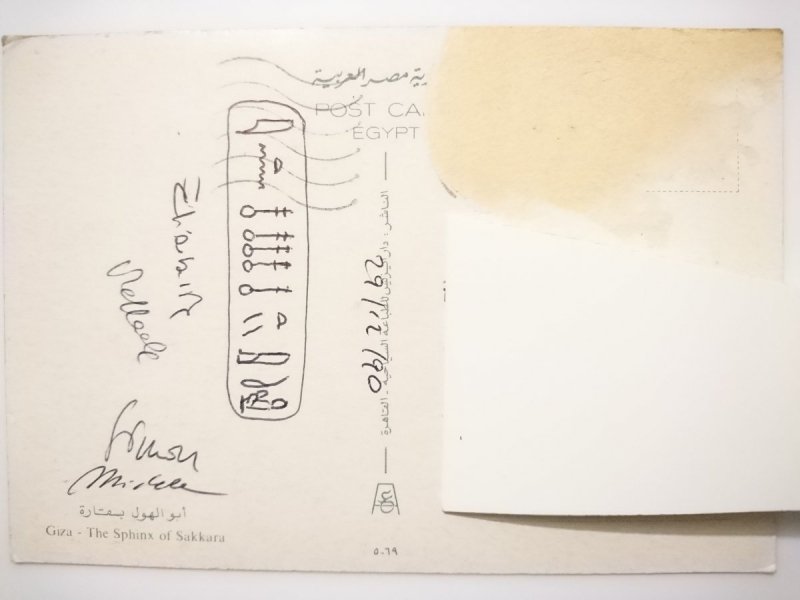 ية مصر العربية
POST CA
EGYPT
الناشر : دار للطباعة السياحية - القاهرة
29/12/90
Raffaele
Simon
Michele
أبو الهول بسقارة
Giza - The Sphinx of Sakkara
٥٠٦٩